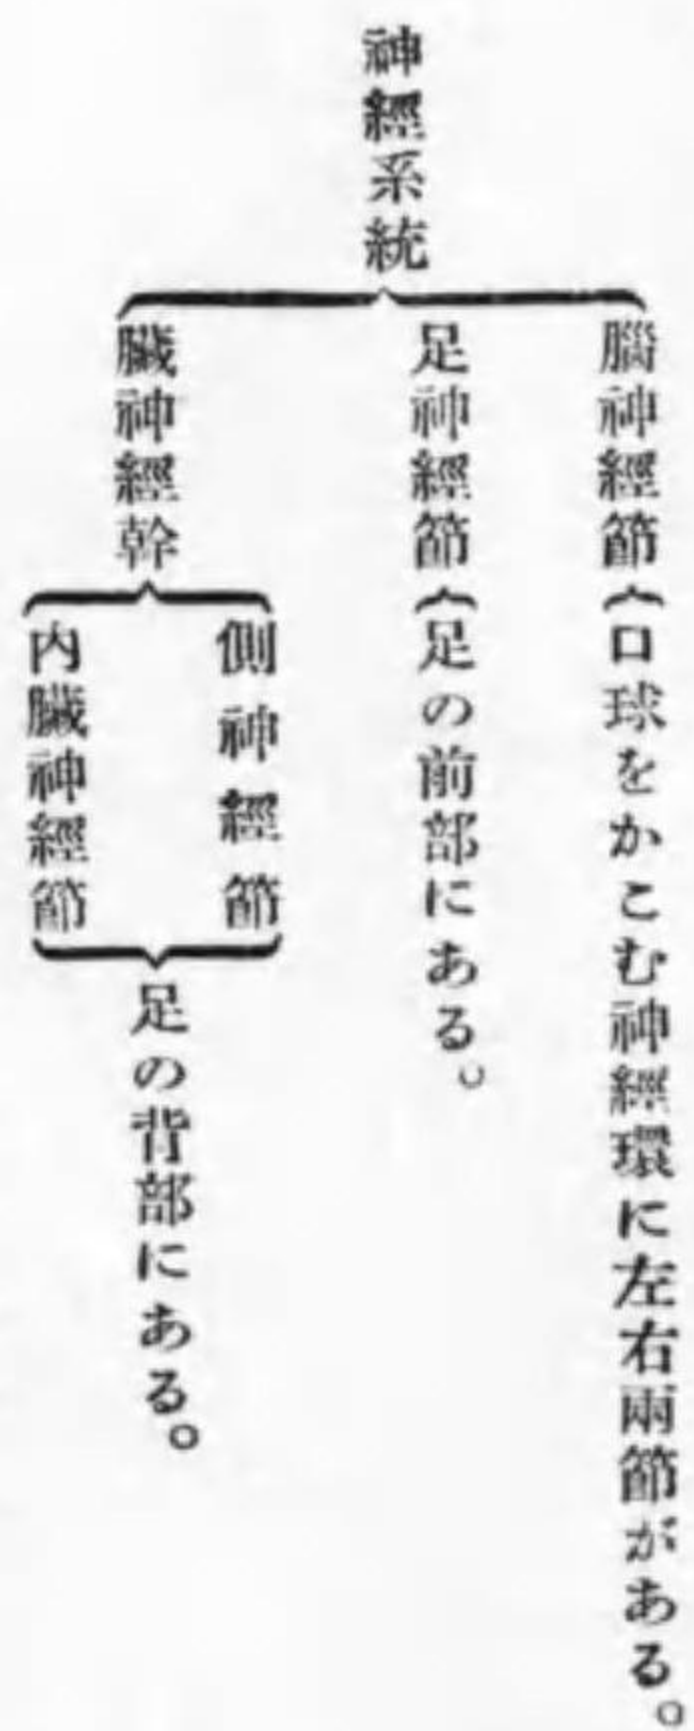 神經系統
腦神經節
口球をかこむ神經環に左右兩節がある。
足神經節
足の前部にある。
臟神經幹
側神經節
內臟神經節
足の背部にある。